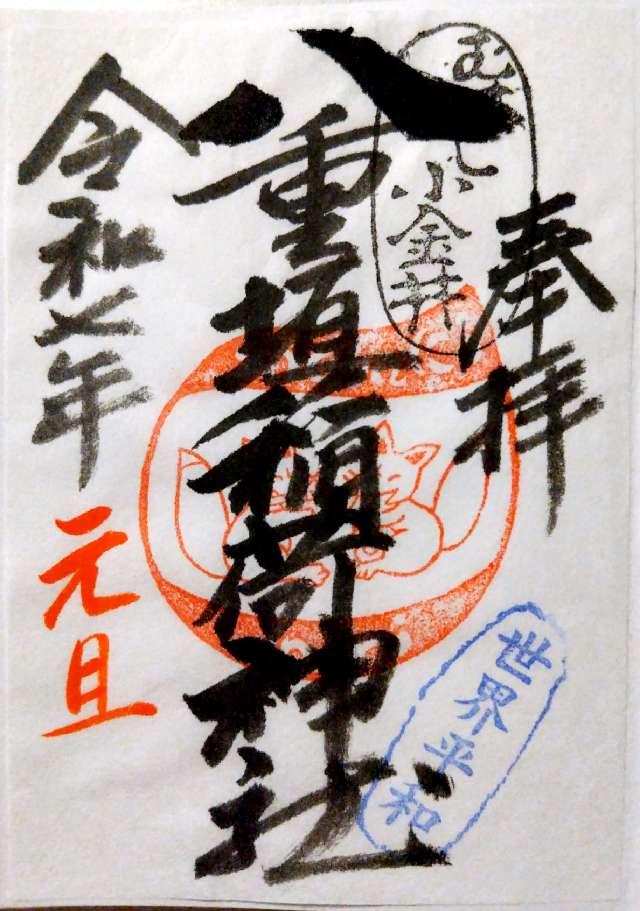 奉拝
小金井
八重垣稲荷神社
令和七年
元旦
世界平和